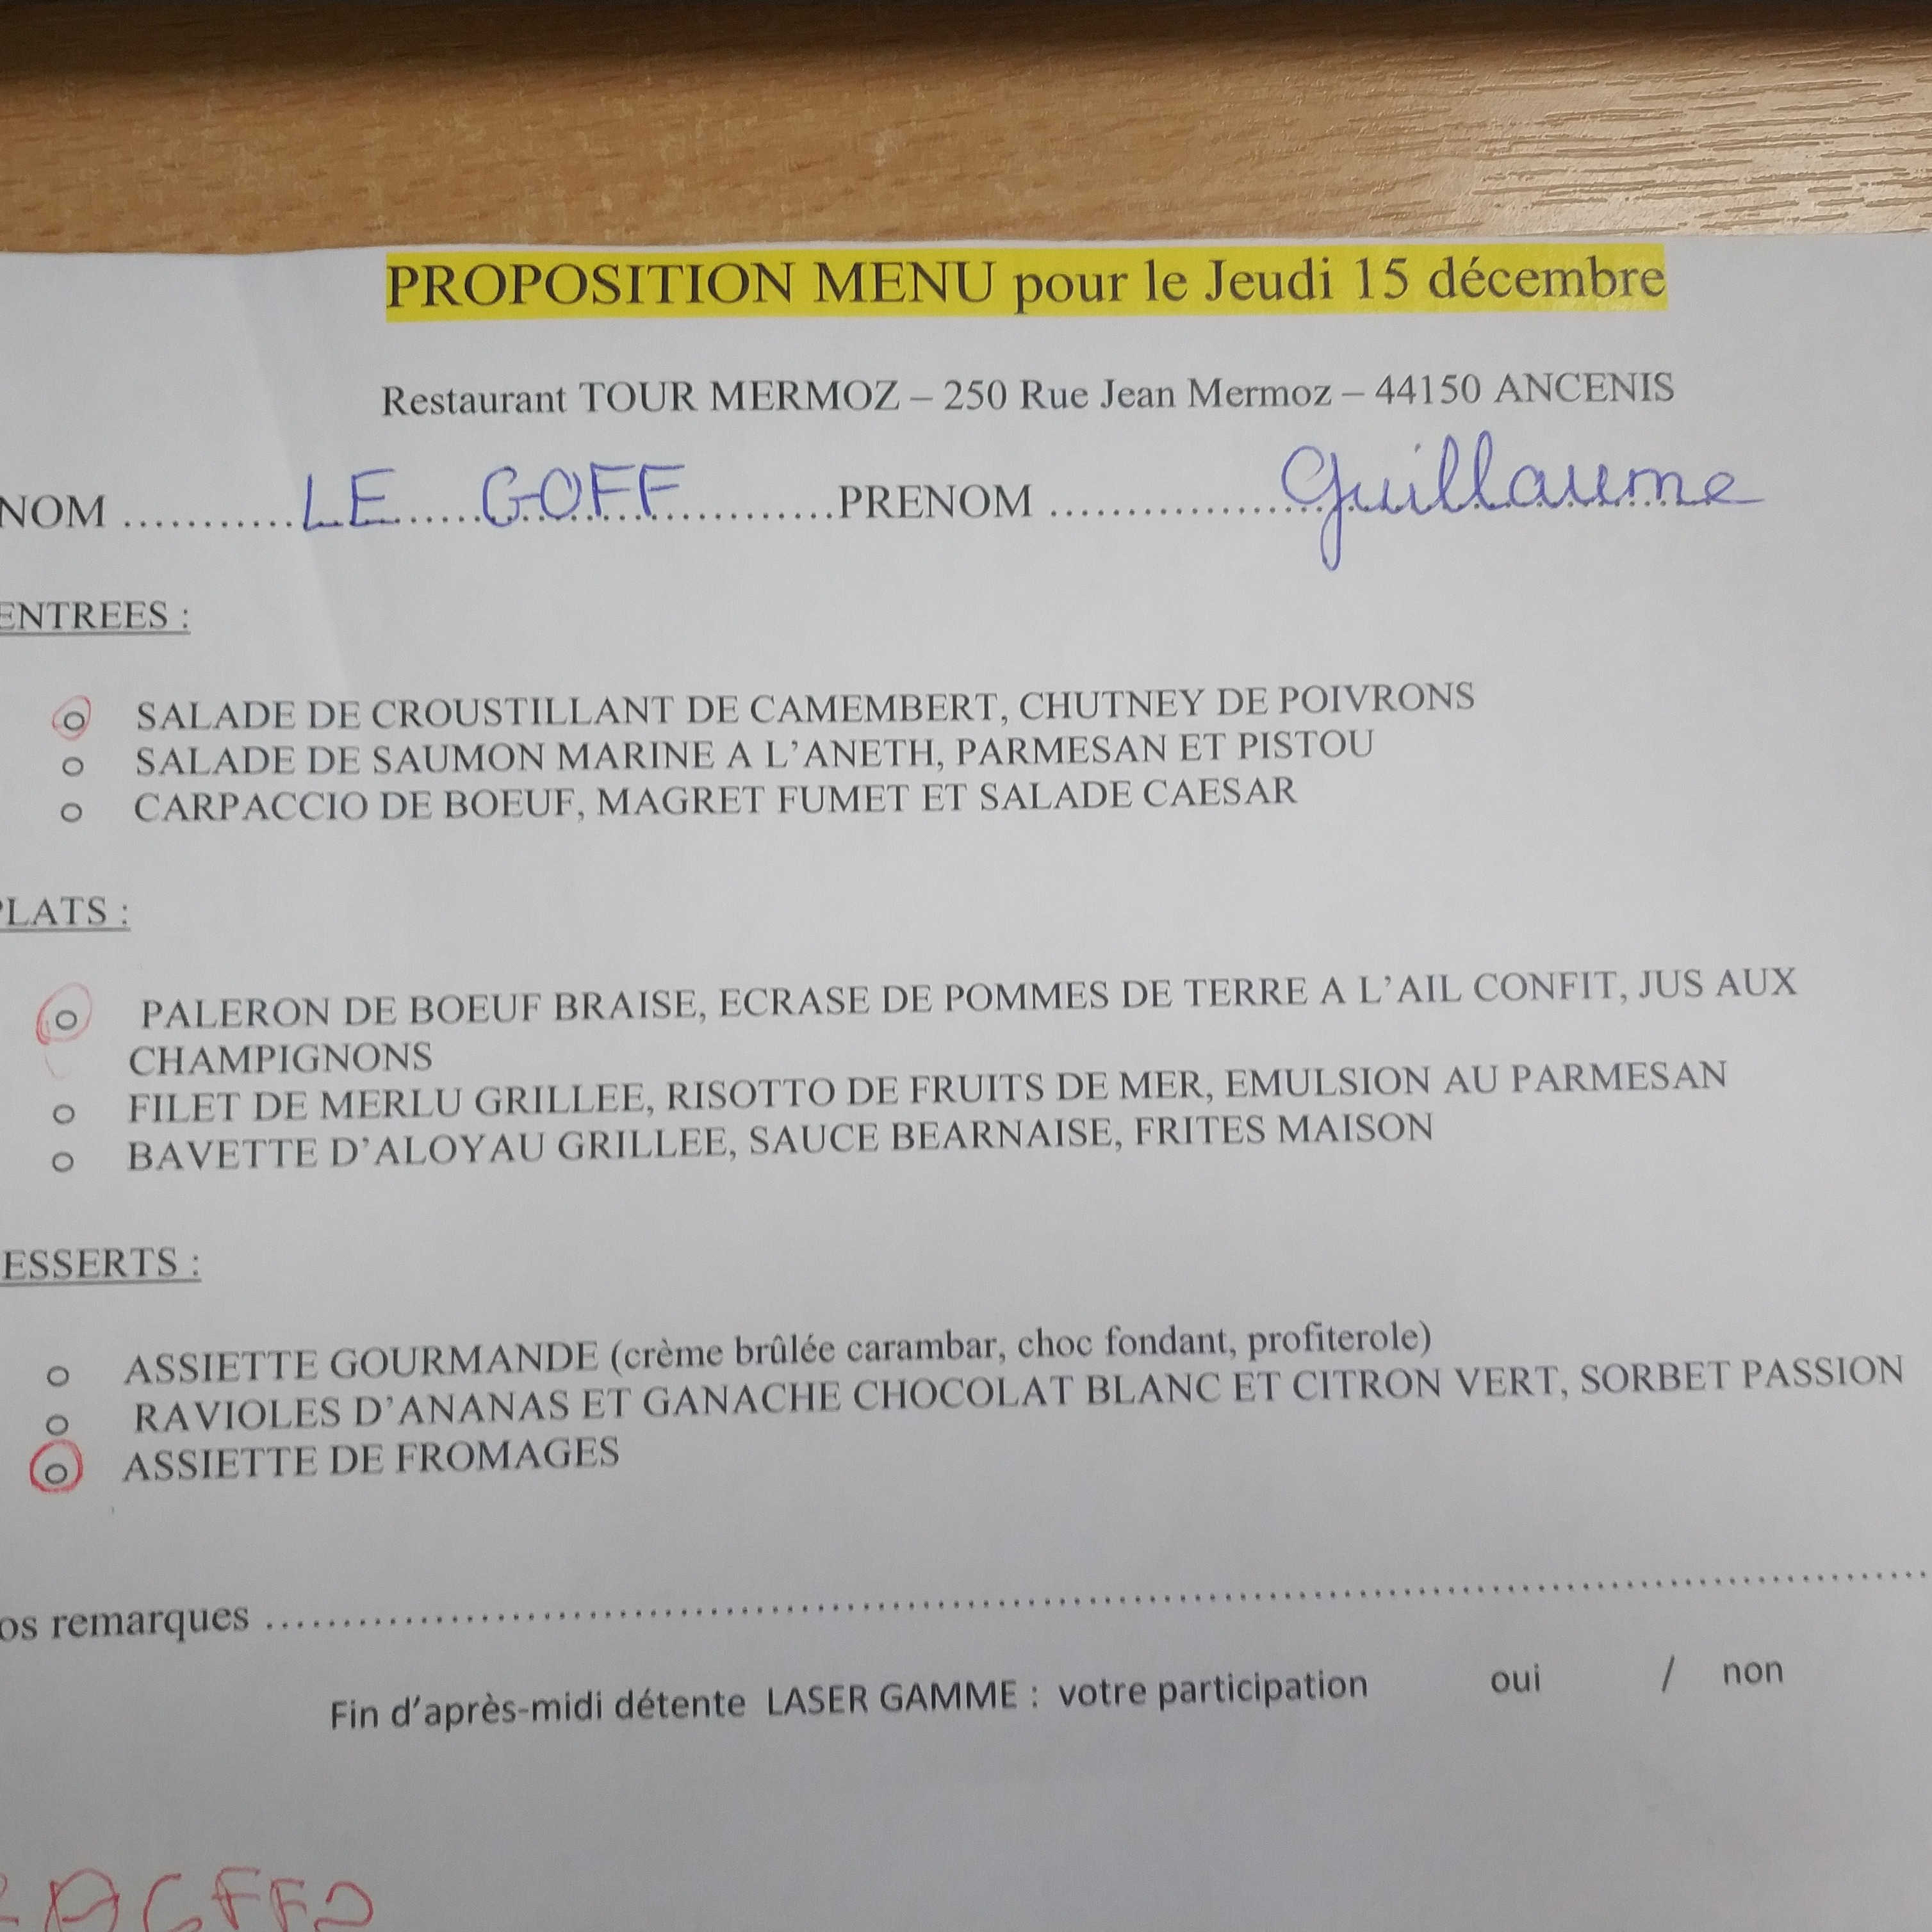 PROPOSITION MENU pour le Jeudi 15 décembre
Restaurant TOUR MERMOZ – 250 Rue Jean Mermoz – 44150 ANCENIS
NOM ...........LE.....GOFF..........PRENOM ................Guillaume
ENTREES :
o SALADE DE CROUSTILLANT DE CAMEMBERT, CHUTNEY DE POIVRONS
o SALADE DE SAUMON MARINE A L'ANETH, PARMESAN ET PISTOU
o CARPACCIO DE BOEUF, MAGRET FUMET ET SALADE CAESAR
PLATS :
o PALERON DE BOEUF BRAISE, ECRASE DE POMMES DE TERRE A L'AIL CONFIT, JUS AUX
CHAMPIGNONS
o FILET DE MERLU GRILLEE, RISOTTO DE FRUITS DE MER, EMULSION AU PARMESAN
o BAVETTE D'ALOYAU GRILLEE, SAUCE BEARNAISE, FRITES MAISON
ESSERTS :
o ASSIETTE GOURMANDE (crème brûlée carambar, choc fondant, profiterole)
o RAVIOLES D'ANANAS ET GANACHE CHOCOLAT BLANC ET CITRON VERT, SORBET PASSION
o ASSIETTE DE FROMAGES
os remarques ........................................
Fin d'après-midi détente LASER GAMME : votre participation oui / non